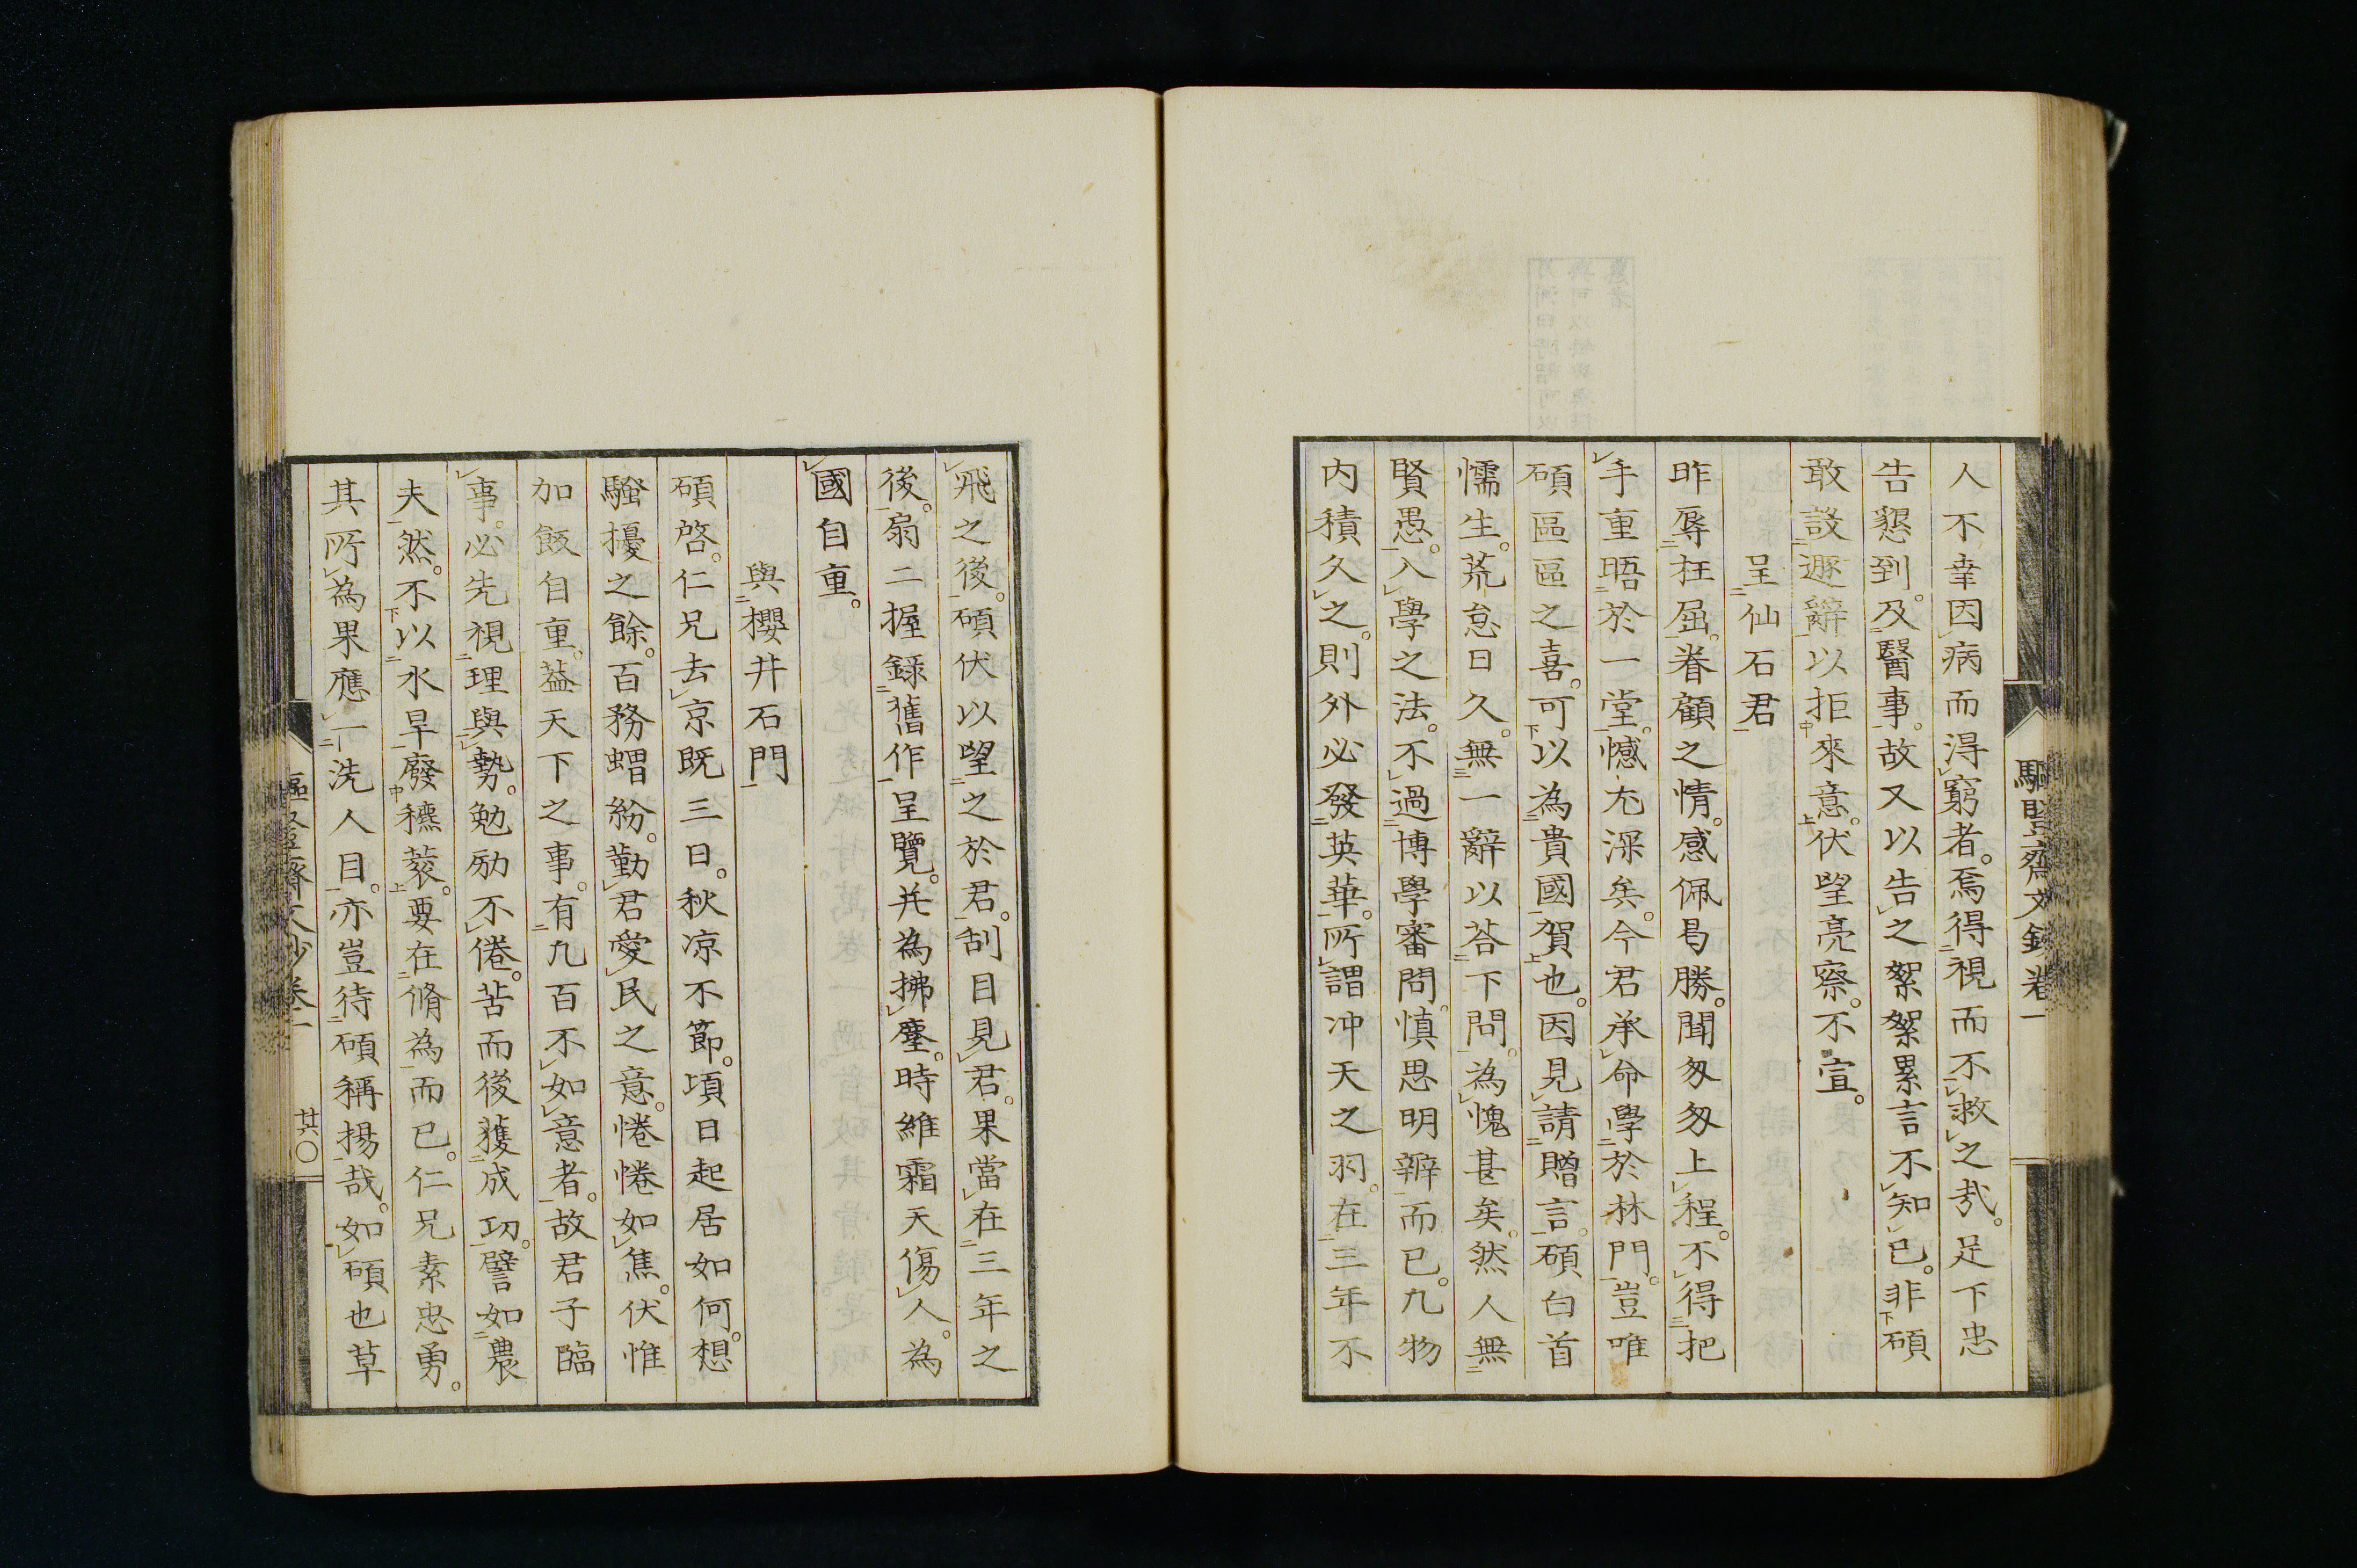 人不幸因病而得窮者。焉得視而不救之哉。足下忠
告懇到。及醫事。故又以告之絮絮累言不知已。非碩
敢設遯辭以拒來意。伏望亮察。不宣。
呈仙石君
昨辱枉屈。眷顧之情。感佩曷勝。聞匆匆上程。不得把
手重晤於一堂。憾尢深矣。今君承命學於林門。豈唯
碩區區之喜。可以為貴國賀也。因見請贈言。碩白首
懦生。荒怠日久。無一辭以荅下問。為愧甚矣。然人無
賢愚。入學之法。不過博學審問。慎思明辨而已。凡物
内積久之。則外必發英華。所謂冲天之羽。在三年不
飛之後。碩伏以望之於君。刮目見君。果當在三年之
後。扇二握錄舊作呈覽。并為拂塵。時維霜天傷人。為
國自重。
與櫻井石門
碩啓。仁兄去京既三日。秋凉不節。頃日起居如何。想
騷擾之餘。百務蝟紛。勤君愛民之意。惓惓如焦。伏惟
加飯自重。蓋天下之事。有九百不如意者。故君子臨
事。必先視理與勢。勉励不倦。苦而後獲成功。譬如農
夫然。不以水旱廢穮蔉。要在脩為而已。仁兄素忠勇。
其所為果應一洗人目。亦豈待碩稱揚哉。如碩也草
其〇